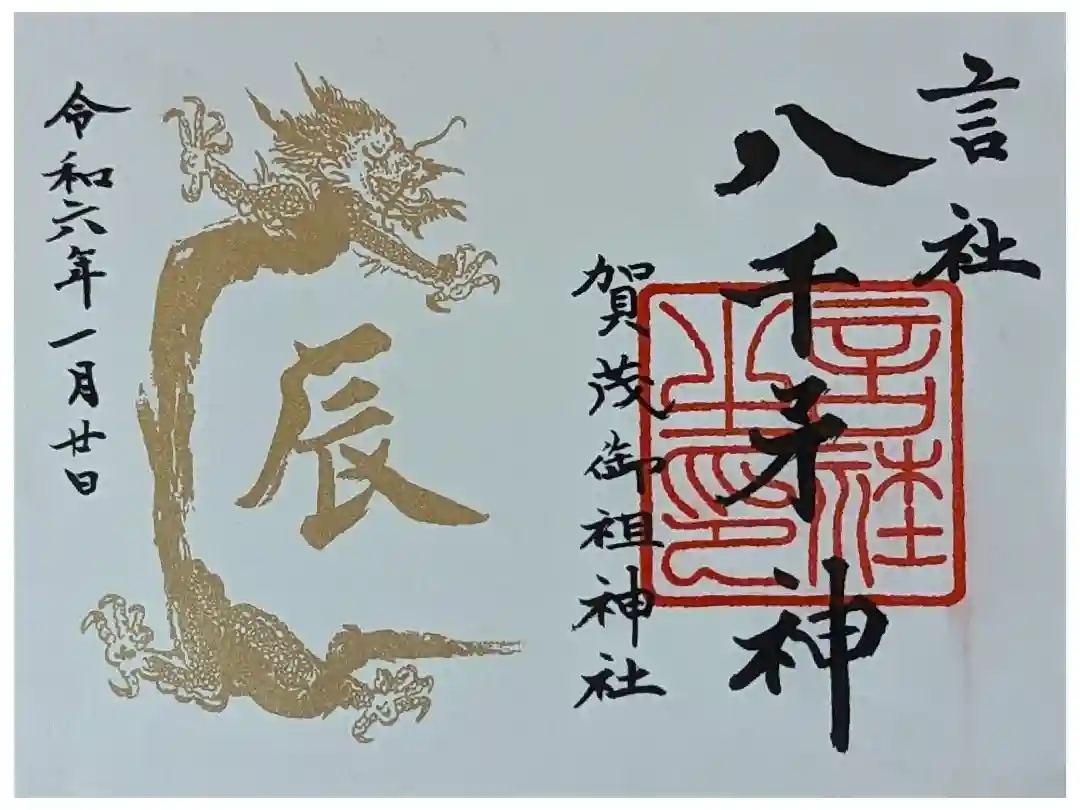 言社
八千矛神
言社
之印
賀茂御祖神社
辰
令和六年一月廿日